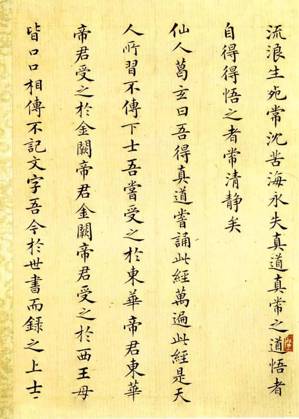 流浪生死常沈苦海永失真道真常之道悟者
自得得悟之者常清静矣
仙人葛玄曰吾得真道嘗誦此經萬遍此經是天
人所習不傳下士吾嘗受之於東華帝君東華
帝君受之於金闕帝君金闕帝君受之於西王母
皆口口相傳不記文字吾今於世書而録之上士